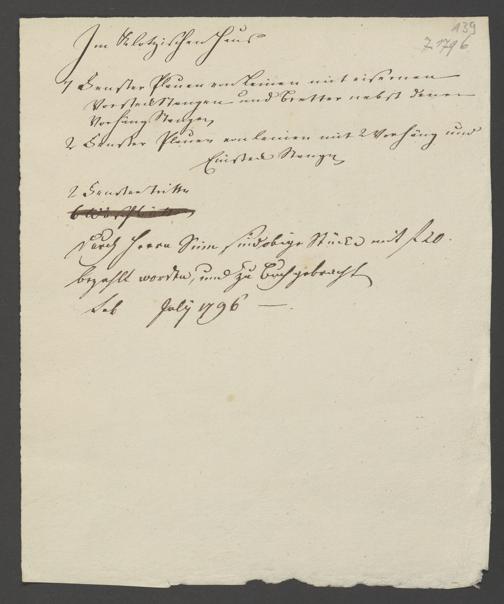 139
7. 1796
Im Klotzischen Haus
7 Fenster Planen von Leinen mit eisernen
Vorsteck Stangen und Bretter nebst denen
Vorhäng Stangen
2 Fenster Planen von Leinen mit 2 Vorhäng und
Einsteck Stangen
2 Fenster tritte
durch Herrn sind obige Stücke mit f 20.
bezahlt worden, und zu Buch gebracht
July 1796